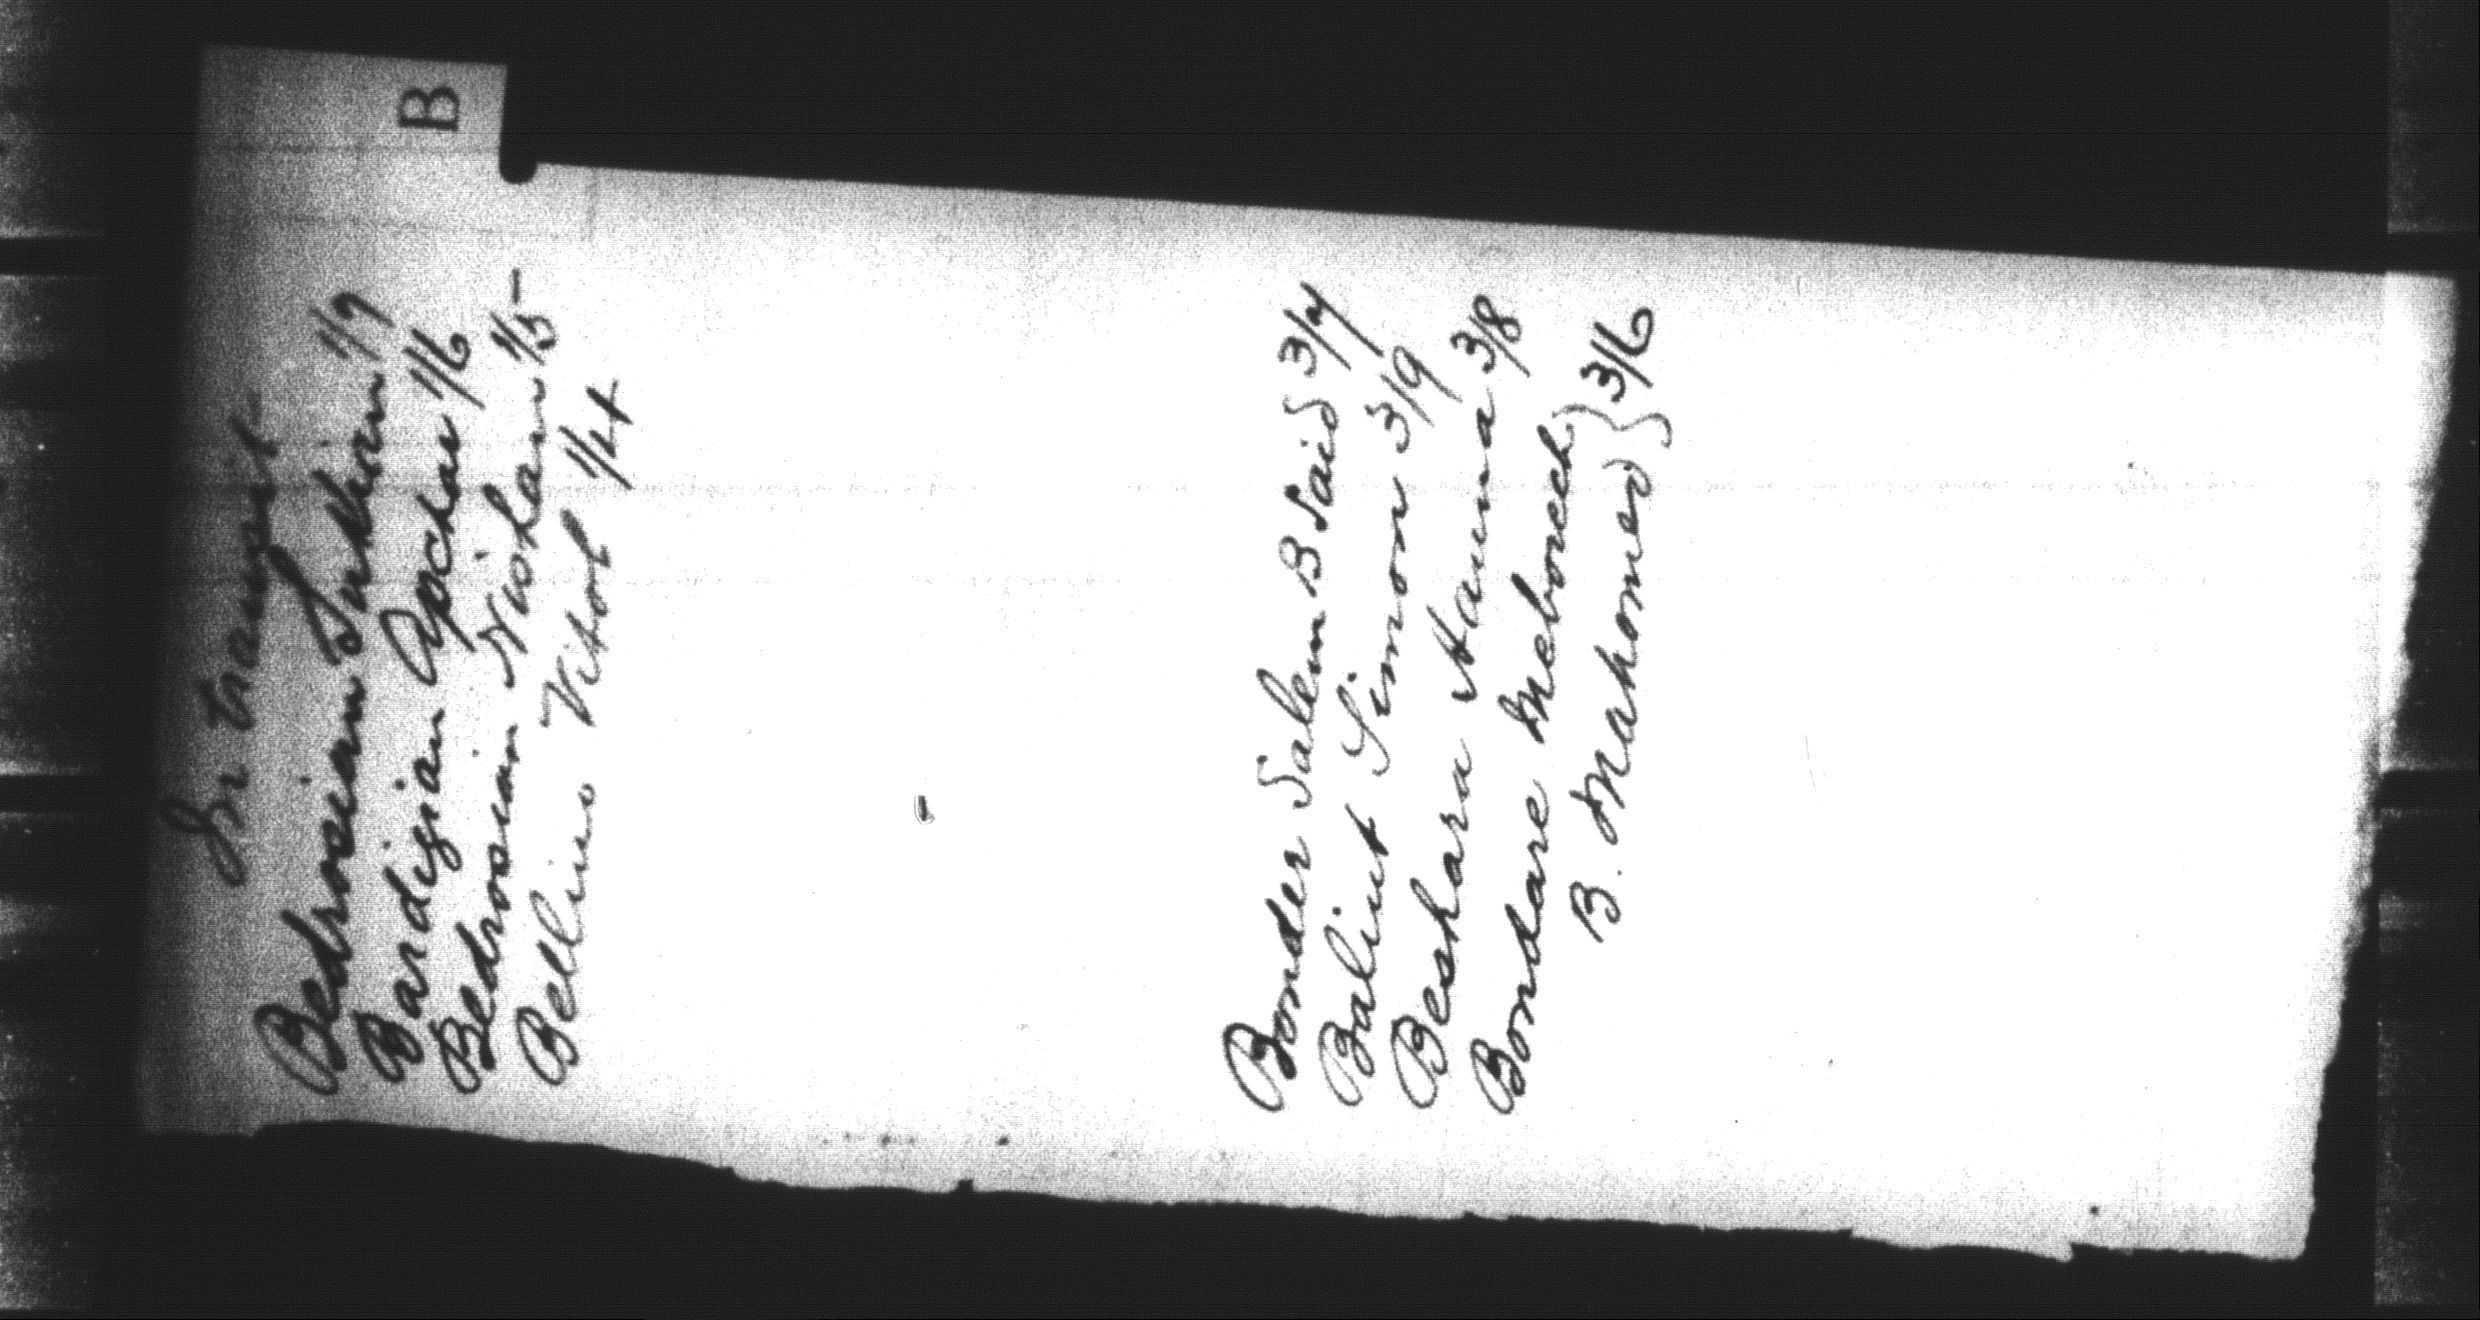 B
In transit
Bedrosian 1/7
Bardizian Apckar 1/6
Bedrosian Nishan 1/5-
Bellino Vitol 1/4
Bonder Salem B Said 3/4
Balint Simon 3/9
Beshara Hanna 3/8
Bondare Mebouch } 3/6
B. Mahomed }